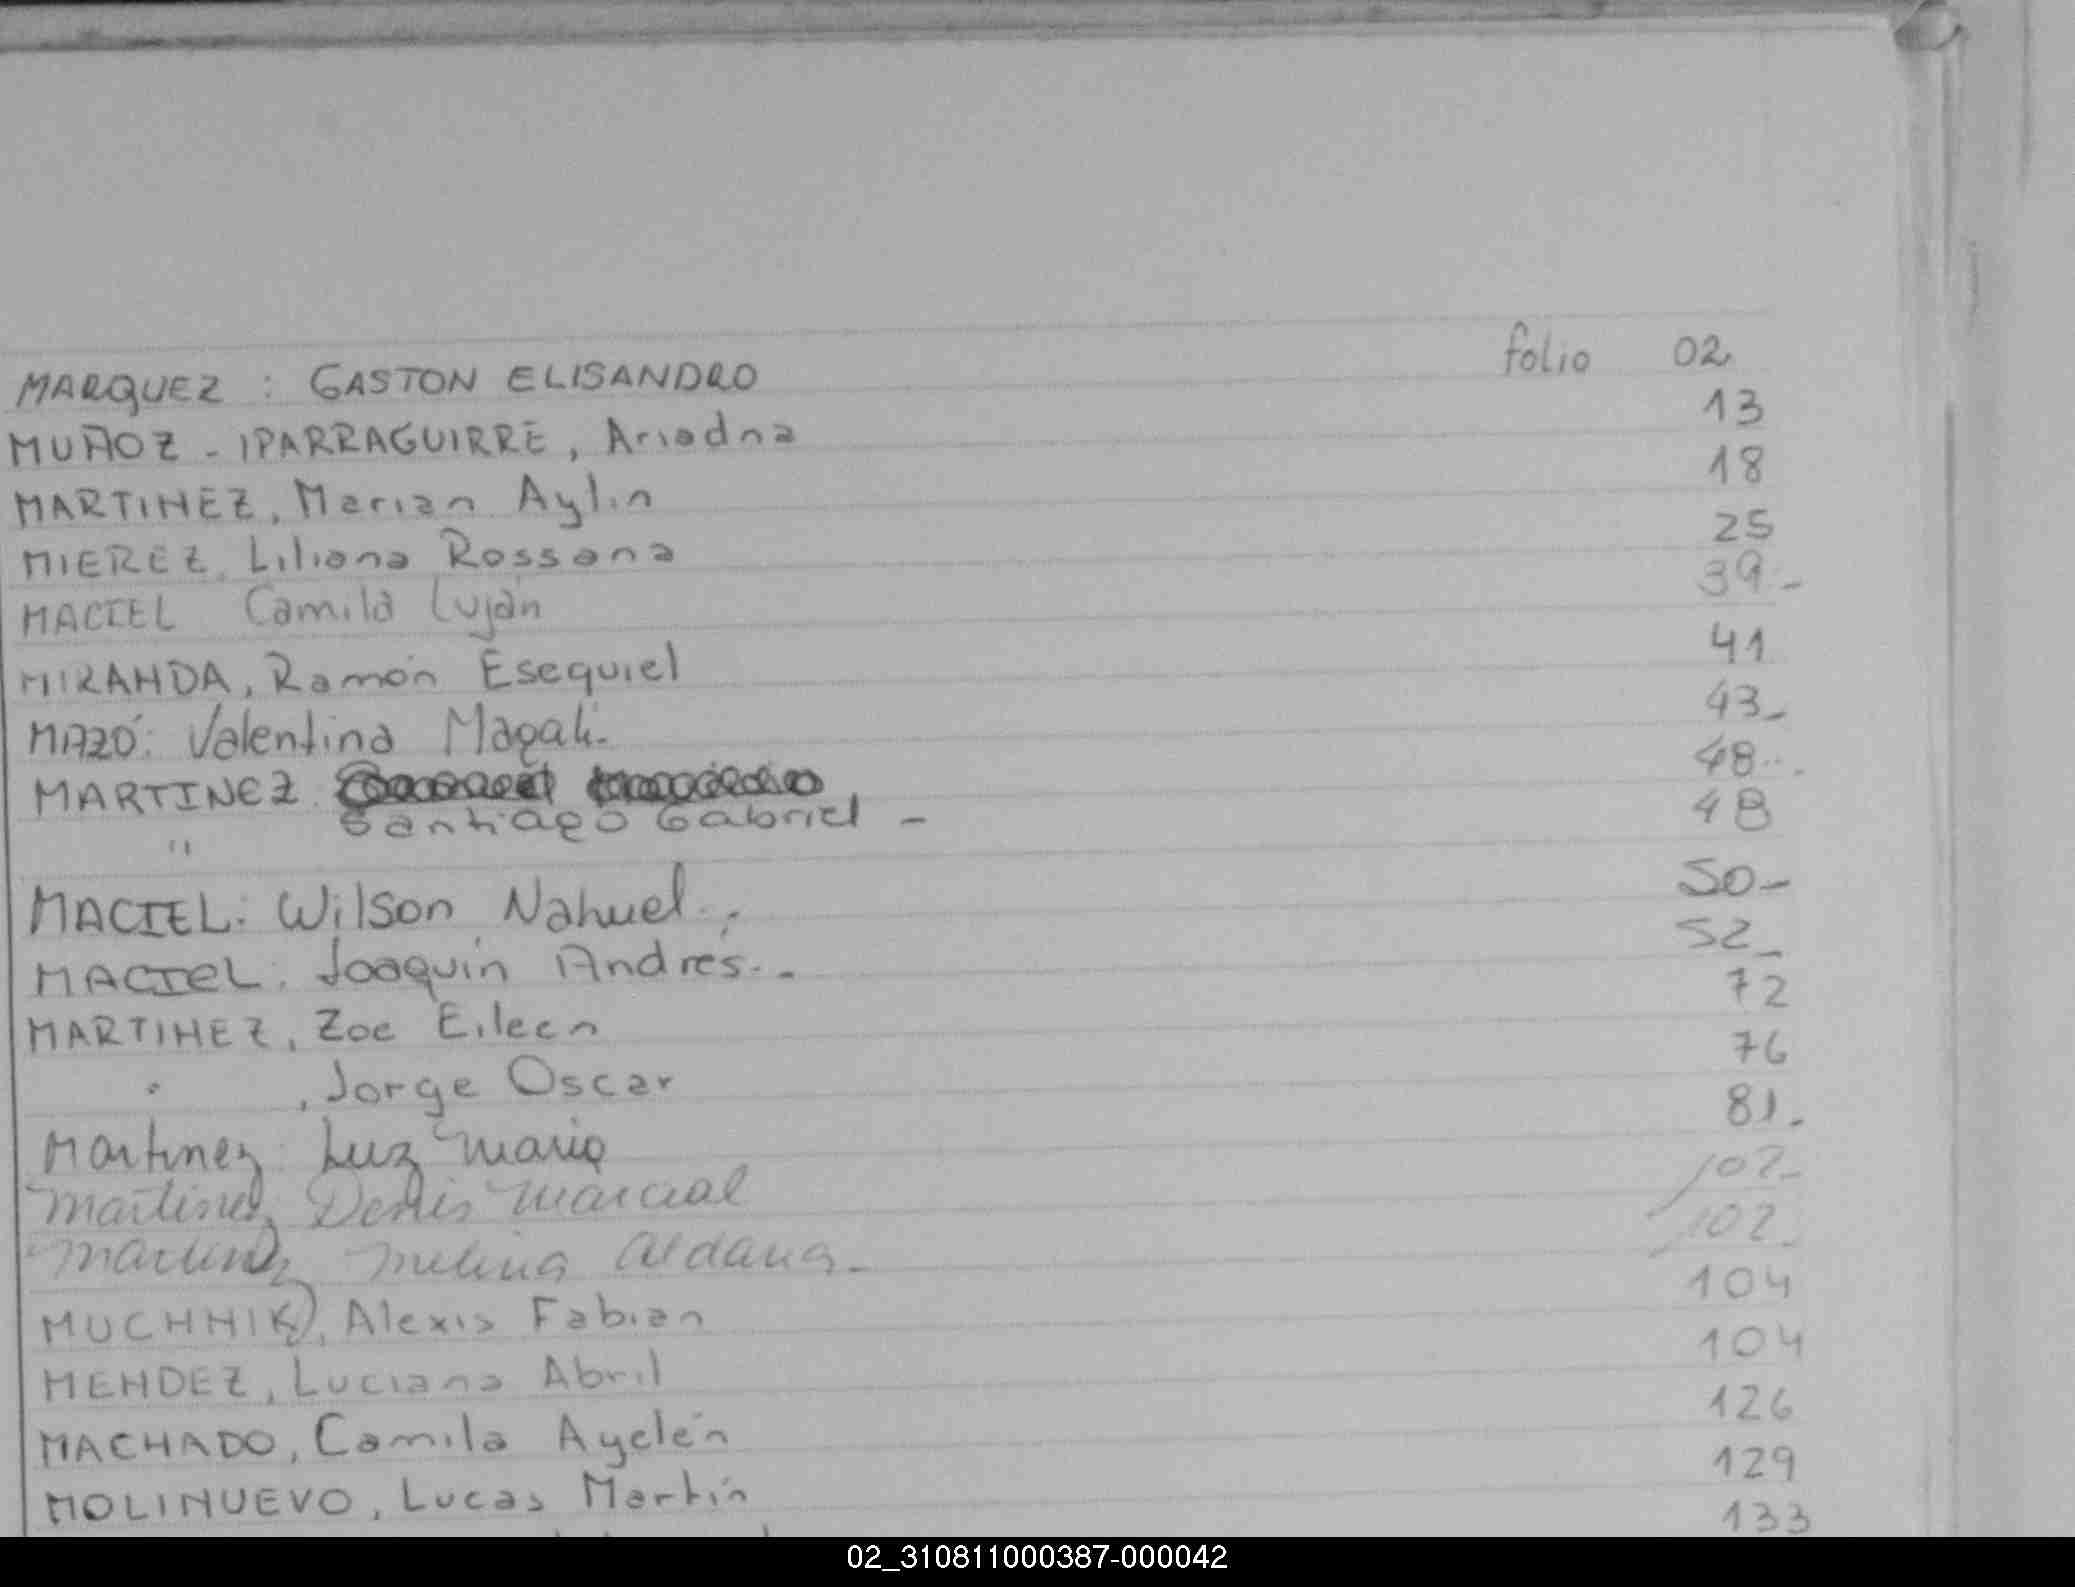 MARQUEZ : GASTON ELISANDRO folio 02
MUÑOZ - IPARRAGUIRRE, Ariadna 13
MARTINEZ, Marian Aylin 18
MIEREZ, Liliana Rossana 25
MACIEL Camila Luján 39-
MIRANDA, Ramón Esequiel 41
MAZÓ: Valentina Magali- 43-
MARTINEZ 48
" Santiago Gabriel - 48
MACIEL: Wilson Nahuel. 50-
MACIEL. Joaquín Andres.- 52-
MARTINEZ, Zoe Eileen 72
" , Jorge Oscar 76
Martinez Luz Maria 81.
Martinez, Denis Marcial 102-
Martinez Melina Aldana- 102-
MUCHNIK, Alexis Fabian 104
MENDEZ, Luciana Abril 104
MACHADO, Camila Ayelén 126
MOLINUEVO, Lucas Martín 129
133
02_310811000387-000042